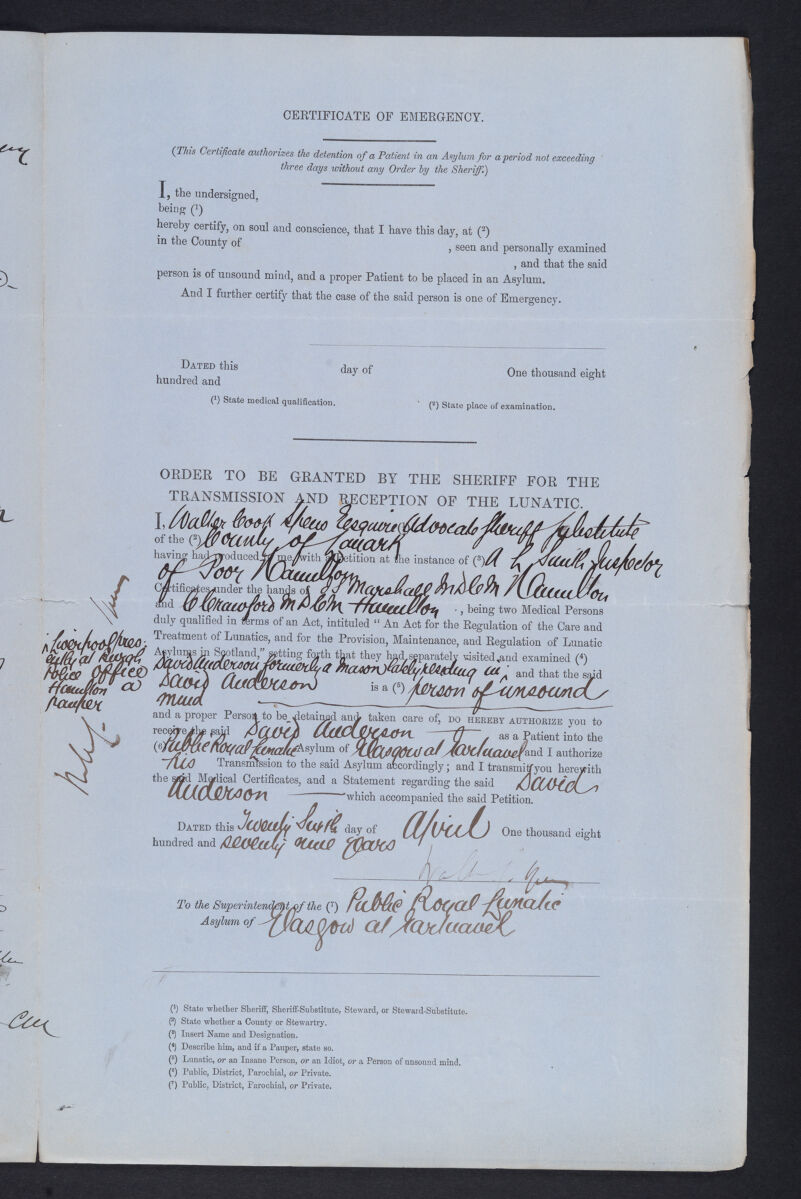 CERTIFICATE OF EMERGENCY.
(This Certificate authorizes the detention of a Patient in an Asylum for a period not exceeding
three days without any Order by the Sheriff.)
I, the undersigned,
being (¹)
hereby certify, on soul and conscience, that I have this day, at (²)
in the County of , seen and personally examined
, and that the said
person is of unsound mind, and a proper Patient to be placed in an Asylum.
And I further certify that the case of the said person is one of Emergency.
DATED this day of One thousand eight
hundred and
(¹) State medical qualification. (²) State place of examination.
ORDER TO BE GRANTED BY THE SHERIFF FOR THE
TRANSMISSION AND RECEPTION OF THE LUNATIC.
I, Walter Cook Spens Esquire Advocate Sheriff Substitute
of the (²) County of Lanark
having had produced to me, with a Petition at the instance of (³) A L Smith Inspector
of Poor Hamilton
Certificates under the hands of Marshall M D C M Hamilton
and C Crawford M D C M Hamilton , being two Medical Persons
duly qualified in terms of an Act, intituled "An Act for the Regulation of the Care and
Treatment of Lunatics, and for the Provision, Maintenance, and Regulation of Lunatic
Asylums in Scotland," setting forth that they had separately visited and examined (⁴)
David Anderson formerly a Mason lately residing in and that the said
Liverpool pres-
ently at Burgh
Police Office
Hamilton a
pauper
David Anderson is a (⁵) person of unsound
mind
and a proper Person to be detained and taken care of, DO HEREBY AUTHORIZE you to
receive the said David Anderson as a Patient into the
(⁶) Public Royal Lunatic Asylum of Glasgow at Gartnavel and I authorize
his Transmission to the said Asylum accordingly; and I transmit you herewith
the said Medical Certificates, and a Statement regarding the said David
Anderson which accompanied the said Petition.
DATED this Twenty Sixth day of April One thousand eight
hundred and seventy nine years
To the Superintendent of the (⁷) Public Royal Lunatic
Asylum of Glasgow at Gartnavel
(¹) State whether Sheriff, Sheriff-Substitute, Steward, or Steward-Substitute.
(²) State whether a County or Stewartry.
(³) Insert Name and Designation.
(⁴) Describe him, and if a Pauper, state so.
(⁵) Lunatic, or an Insane Person, or an Idiot, or a Person of unsound mind.
(⁶) Public, District, Parochial, or Private.
(⁷) Public, District, Parochial, or Private.